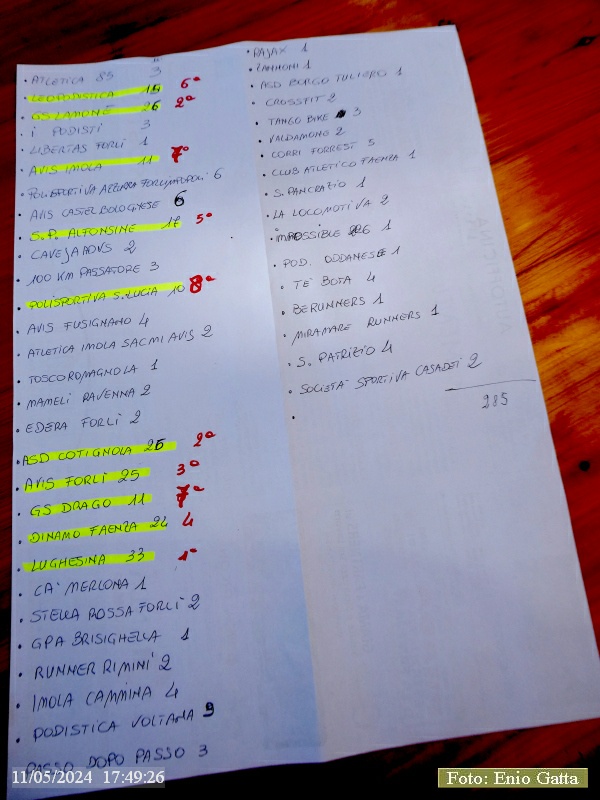 • ATLETICA 85 3
• LEOPODISTICA 15 6°
• GS LAMONE 26 2°
• I PODISTI 3
• LIBERTAS FORLÌ 1
• AVIS IMOLA 11 7°
• POLISPORTIVA AZZURRA FORLIMPOPOLI 6
• AVIS CASTELBOLOGNESE 6
• S.P. ALFONSINE 17 5°
• CAVEJA ADVS 2
• 100 KM PASSATORE 3
• POLISPORTIVA S. LUCIA 10 8°
• AVIS FUSIGNANO 4
• ATLETICA IMOLA SACMI AVIS 2
• TOSCOROMAGNOLA 1
• MAMELI RAVENNA 2
• EDERA FORLÌ 2
• ASD COTIGNOLA 26 2°
• AVIS FORLÌ 25 3°
• GS DRAGO 11 7°
• DINAMO FAENZA 24 4
• LUGHESINA 33 1°
• CA' MERLONA 1
• STELLA ROSSA FORLÌ 2
• GPA BRISIGHELLA 1
• RUNNER RIMINI 2
• IMOLA CAMMINA 4
• PODISTICA VOLTANA 9
PASSO DOPO PASSO 3
• RAJAX 1
• ZANNONI 1
• ASD BORGO TULIERO 1
• CROSSFIT 2
• TANGO BIKE 3
• VALDAMONE 2
• CORRI FORREST 5
• CLUB ATLETICO FAENZA 1
• S. PANCRAZIO 1
• LA LOCOMOTIVA 2
• IMPOSSIBLE 226 1
• POD. OZZANESE 1
• TE BOTA 4
• BERUNNERS 1
• MIRAMARE RUNNERS 1
• S. PATRIZIO 4
• SOCIETÀ SPORTIVA CASADEI 2
285
•
11/05/2024 17:49:26
Foto: Enio Gatta